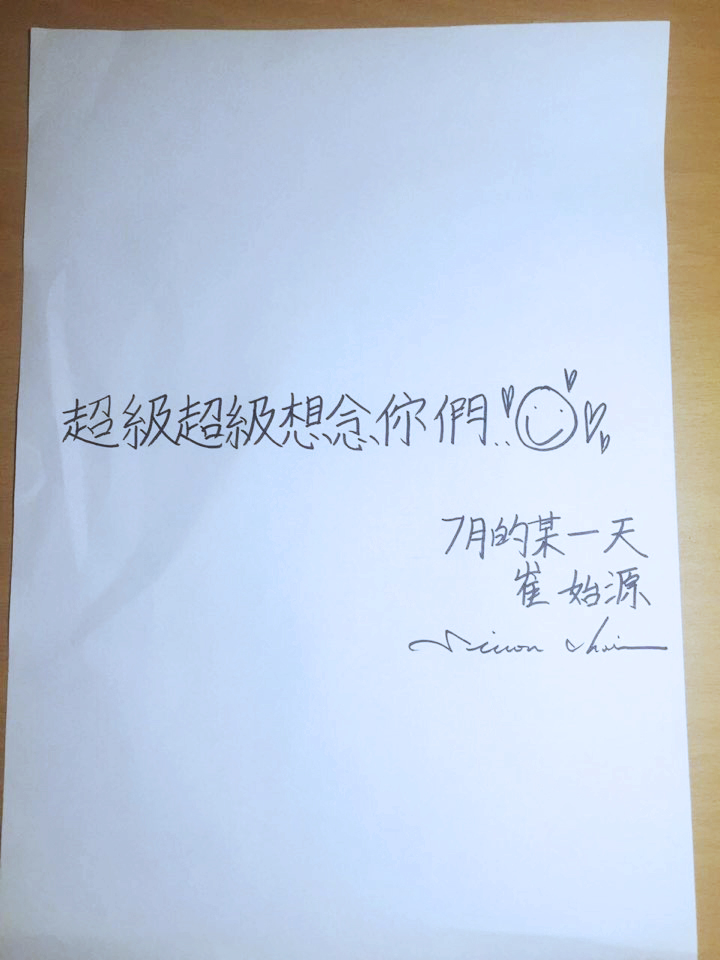 超級超級想念你們..
7月的某一天
崔始源
Siwon Choi